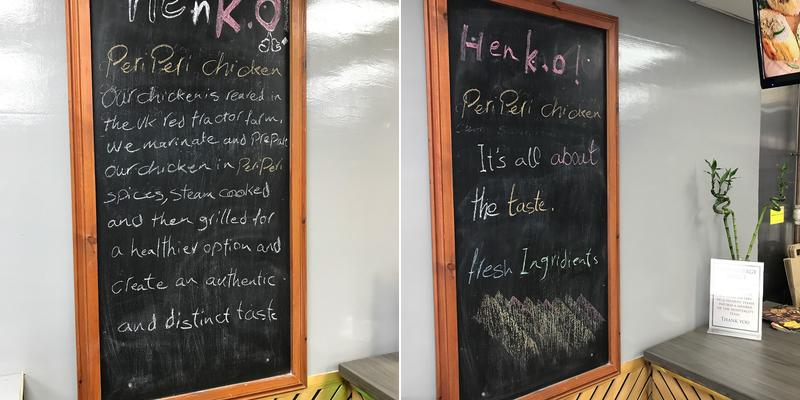 Henk.O
Peri Peri chicken
Our chicken is reared in
the UK red tractor farm.
We marinate and Prepare
our chicken in Peri Peri
spices, steam cooked
and then grilled for
a healthier option and
create an authentic
and distinct taste
Henk.o!
Peri Peri chicken
It's all about
the taste.
fresh Ingridients
THANK YOU